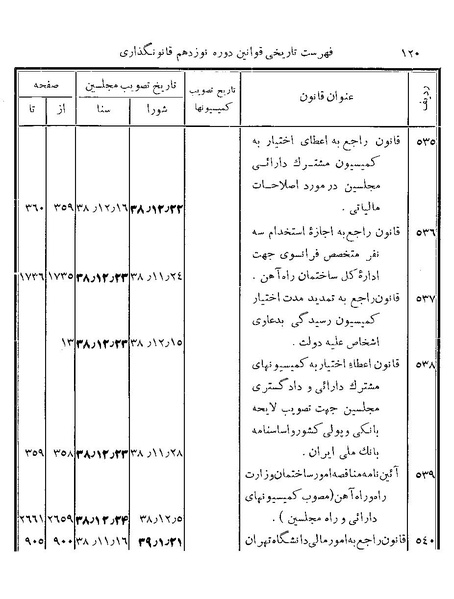 ۱۲۰ فهرست تاریخی قوانین دوره نوزدهم قانونگذاری
ردیف عنوان قانون تاریخ تصویب کمیسیونها تاریخ تصویب مجلسین صفحه
شورا سنا از تا
۵۳۵ قانون راجع به اعطای اختیار به
کمیسیون مشترک دارائی
مجلسین در مورد اصلاحات
مالیاتی . ۳۸٫۱۲٫۲۲ ۳۸٫۱۲٫۱۶ ۳۵۹ ۳۶۰
۵۳۶ قانون راجع به اجازهٔ استخدام سه
نفر متخصص فرانسوی جهت
ادارهٔ کل ساختمان راه آهن . ۳۸٫۱۱٫۲۴ ۳۸٫۱۲٫۲۳ ۱۷۳۵ ۱۷۳۶
۵۳۷ قانون راجع به تمدید مدت اختیار
کمیسیون رسیدگی بدعاوی
اشخاص علیه دولت . ۳۸٫۱۲٫۱۵ ۳۸٫۱۲٫۲۳ ۱۳
۵۳۸ قانون اعطاء اختیار به کمیسیونهای
مشترک دارائی و دادگستری
مجلسین جهت تصویب لایحه
بانکی و پولی کشور و اساسنامه
بانک ملی ایران . ۳۸٫۱۱٫۲۸ ۳۸٫۱۲٫۲۳ ۳۵۸ ۳۵۹
۵۳۹ آئین نامه مناقصه امور ساختمان وزارت
راه و راه آهن (مصوب کمیسیونهای
دارائی و راه مجلسین ) . ۳۸٫۱۲٫۵ ۳۸٫۱۲٫۲۴ ۲۶۵۹ ۲۶۶۱
۵۴۰ قانون راجع به امور مالی دانشگاه تهران ۳۹٫۱٫۲۱ ۳۸٫۱۱٫۱۶ ۹۰۰ ۹۰۵